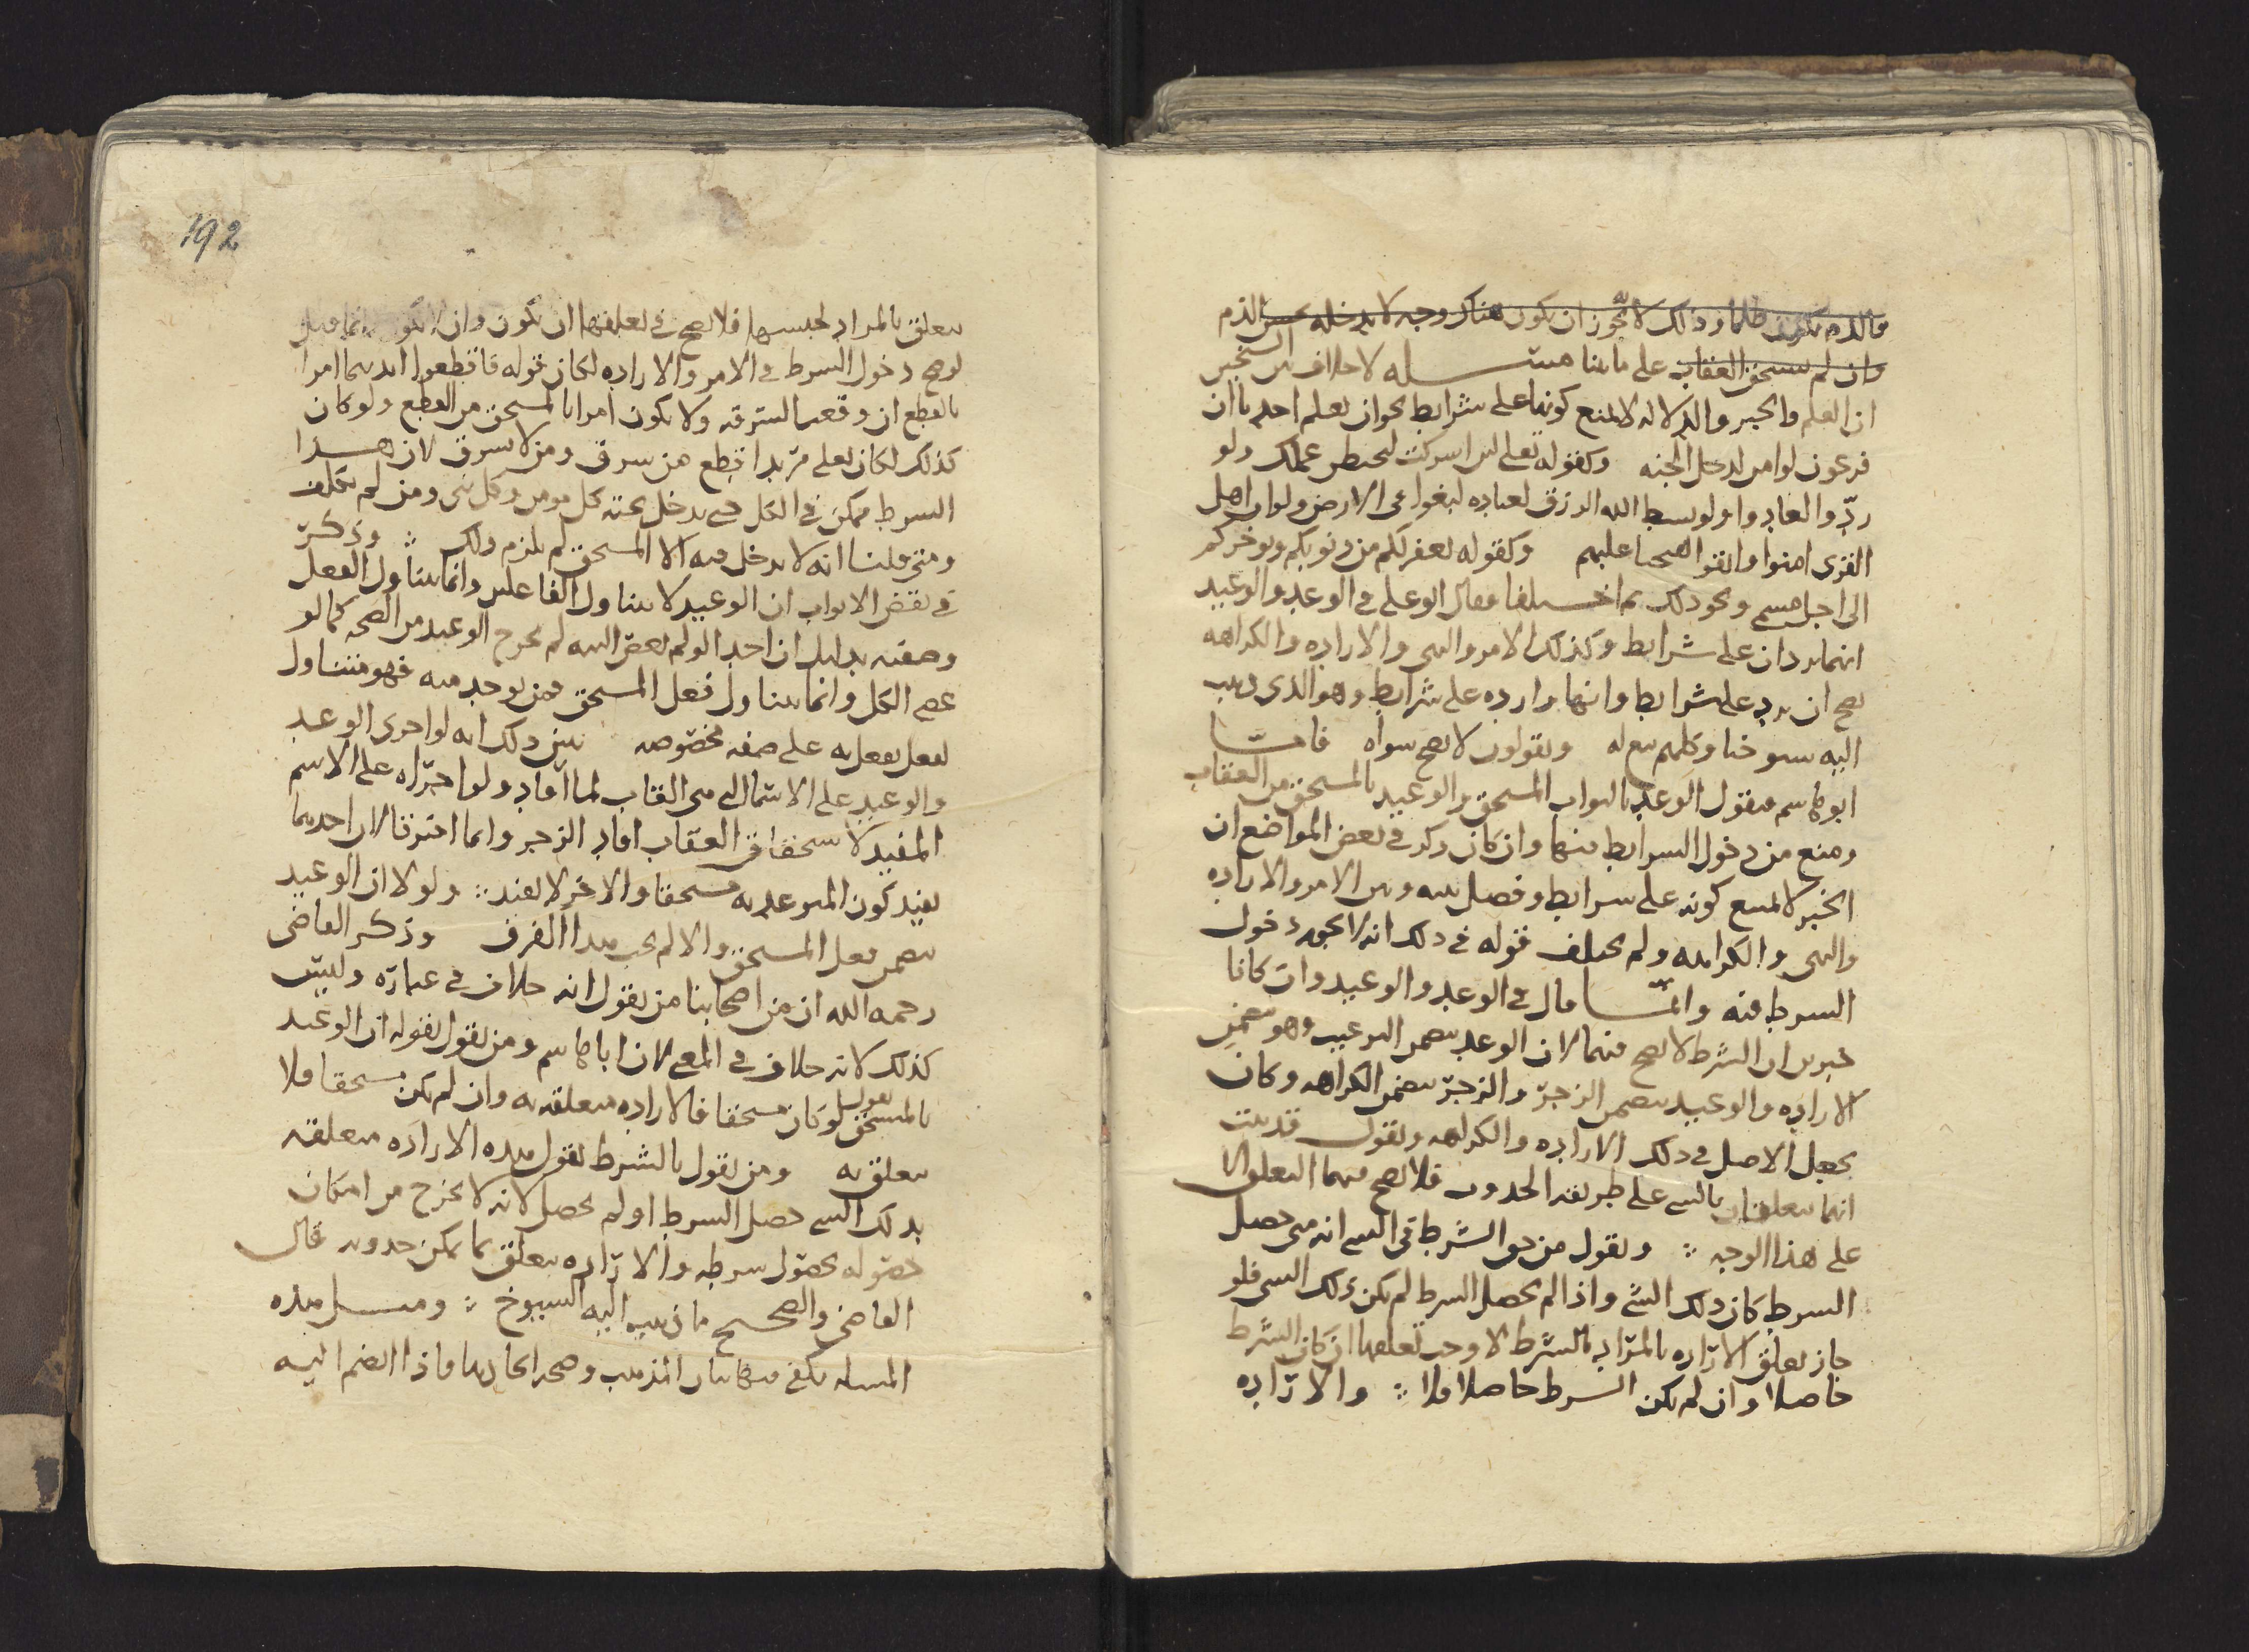 فالذم يكون ظلما وذلك لا يجوز ان يكون هناك وجه لا يدخله الذم
وان لم يستحق العقاب على ما بينا مسئله لا خلاف بين الشيخين
ان العلم والخبر والدلاله لا يمنع كونها على شرايط نحو ان يعلم احدنا ان
فرعون لو امن لدخل الجنه وكقوله تعلى لين اشركت ليحبطن عملك ولو
ردّوا لعادوا ولو بسط الله الرزق لعباده لبغوا في الارض ولو ان اهل
القرى امنوا واتقوا لفتحنا عليهم وكقوله يغفر لكم من ذنوبكم ويؤخركم
الى اجل مسمى ونحو ذلك ثم اختلفا فقال ابو علي في الوعد والوعيد
انهما يردان على شرايط وكذلك الامر والنهي والاراده والكراهه
يصح ان يرد على شرايط وانها وارده على شرايط وهو الذي ذهب
اليه شيوخنا وكلهم تبع له ويقولون لا يصح سواه فامّا
ابو هاشم فيقول الوعد بالثواب المستحق والوعيد بالمستحق من العقاب
ومنع من دخول الشرايط فيها وان كان ذكر في بعض المواضع ان
الخبر لا يمنع كونه على شرايط وفصل بينه وبين الامر والاراده
والنهي والكراهه ولم يختلف قوله في ذلك انه لا يجوز دخول
الشرط فيه وانّما قال في الوعد والوعيد وان كانا
خبرين ان الشرط لا يصح فيهما لان الوعد يتضمن الترغيب وهو يتضمن
الاراده والوعيد يتضمن الزجر والزجر يتضمن الكراهه وكان
يجعل الاصل في ذلك الاراده والكراهه ويقول قد بينت
انهما يتعلقان بالشي على طريقه الحدوث فلا يصح فيهما التعلق الا
على هذا الوجه ويقول من حق الشرط في الشي انه متى حصل
الشرط كان ذلك الشي واذا لم يحصل الشرط لم يكن ذلك الشي فلو
جاز تعلق الاراده بالمراد بالشرط لاوجب تعلقها ان كان الشرط
حاصلا وان لم يكن الشرط حاصلا فلا والاراده
192
يتعلق بالمراد لجنسها فلا يصح في تعلقها ان يكون وان لا يكون
لو صح دخول الشرط في الامر والاراده لكان قوله فاقطعوا ايديهما امرا
بالقطع ان وقعت السرقه ولا يكون امرا بالمستحق من القطع ولو كان
كذلك لكان تعلى مريدا قطع من سرق ومن لا يسرق لان هذا
الشرط ممكن في الكل حتى يدخل تحته كل مومن وكل نبي ومن لم يكلف
ومتى قلنا انه لا يدخل فيه الا المستحق لم يلزم ذلك وذكر
في نقض الابواب ان الوعيد لا يتناول الفاعلين وانما يتناول الفعل
وصفته بدليل ان احدا لو لم يعص الله لم يخرج الوعيد من الصحه كما لو
عصى الكل وانما يتناول فعل المستحق فمن يوجد منه فهو متناول
لفعل يفعل به على صفه مخصوصه يبين ذلك انه لو اجرى الوعد
والوعيد على الاسما التي هي القاب لما افاد ولو اجراه على الاسم
المفيد لاستحقاق العقاب افاد الزجر وانما افترقا لان احدهما
يفيد كون المتوعد به مستحقا والاخر لا يفيد ولولا ان الوعيد
يتضمن فعل المستحق والا لم يجب هذا الفرق وذكر القاضي
رحمه الله ان من اصحابنا من يقول انه خلاف في عباره وليس
كذلك لانه خلاف في المعنى لان ابا هاشم ومن يقول بقوله ان الوعيد
بالمستحق يقول لو كان مستحقا فالاراده متعلقه به وان لم يكن مستحقا فلا
يتعلق به ومن يقول بالشرط يقول هذه الاراده متعلقه
بذلك الشي حصل الشرط او لم يحصل لانه لا يخرج من امكان
حصوله بحصول شرطه والاراده يتعلق بما يمكن حدوثه قال
القاضي والصحيح ما ذهب اليه الشيوخ ومثل هذه
المسله يكفي فيها بيان المذهب وصحه احاديها فاذا انضم اليه